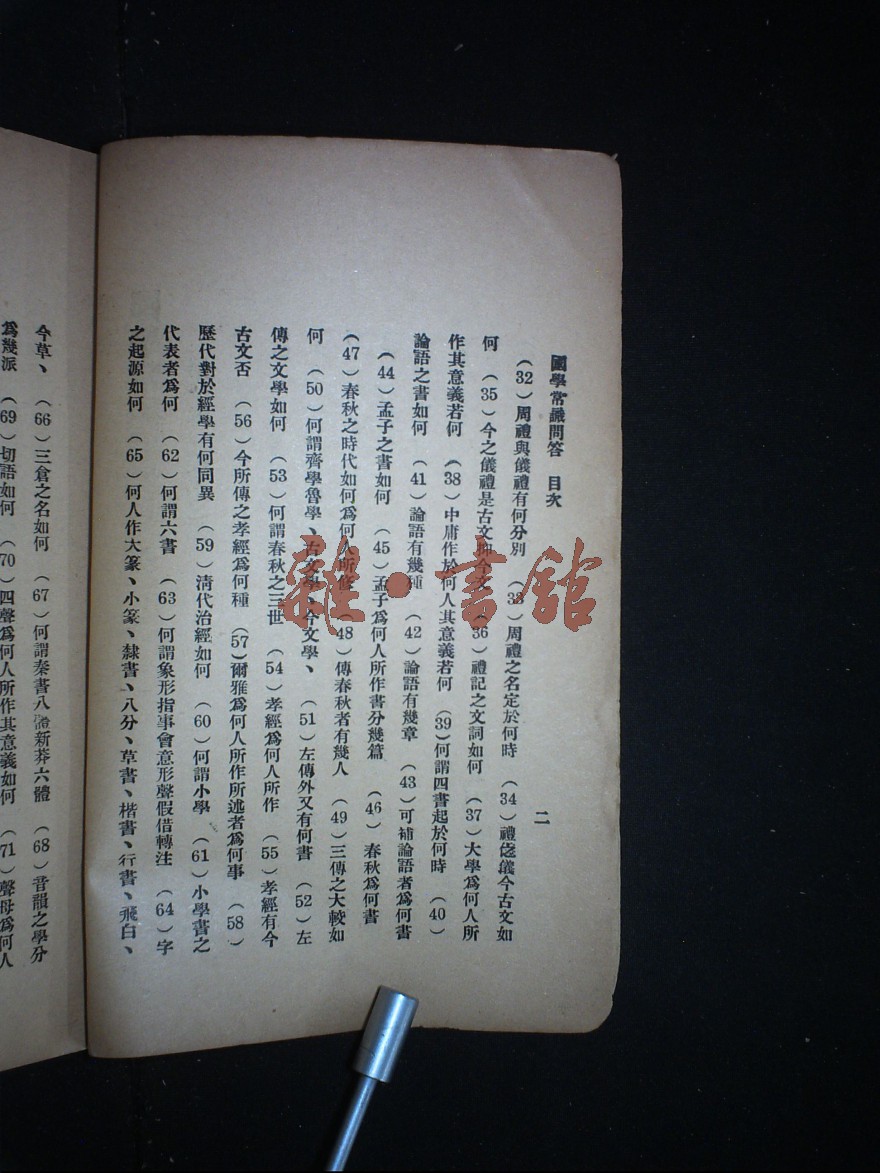 國學常識問答 目次
二
(32)周禮與儀禮有何分別 (33)周禮之名定於何時 (34)禮儀今古文如
何 (35)今之儀禮是古文抑今文 (36)禮記之文詞如何 (37)大學爲何人所
作其意義若何 (38)中庸作於何人其意義若何 (39)何謂四書起於何時 (40)
論語之書如何 (41)論語有幾種 (42)論語有幾章 (43)可補論語者爲何書
(44)孟子之書如何 (45)孟子爲何人所作書分幾篇 (46)春秋爲何書
(47)春秋之時代如何爲何人所修 (48)傳春秋者有幾人 (49)三傳之大較如
何 (50)何謂齊學魯學、古文學、今文學、 (51)左傳外又有何書 (52)左
傳之文學如何 (53)何謂春秋之三世 (54)孝經爲何人所作 (55)孝經有今
古文否 (56)今所傳之孝經爲何種 (57)爾雅爲何人所作所述者爲何事 (58)
歷代對於經學有何同異 (59)清代治經如何 (60)何謂小學 (61)小學書之
代表者爲何 (62)何謂六書 (63)何謂象形指事會意形聲假借轉注 (64)字
之起源如何 (65)何人作大篆、小篆、隸書、八分、草書、楷書、行書、飛白、
今草、 (66)三倉之名如何 (67)何謂秦書八體新莽六體 (68)音韻之學分
爲幾派 (69)切語如何 (70)四聲爲何人所作其意義如何 (71)聲母爲何人
雜·書館